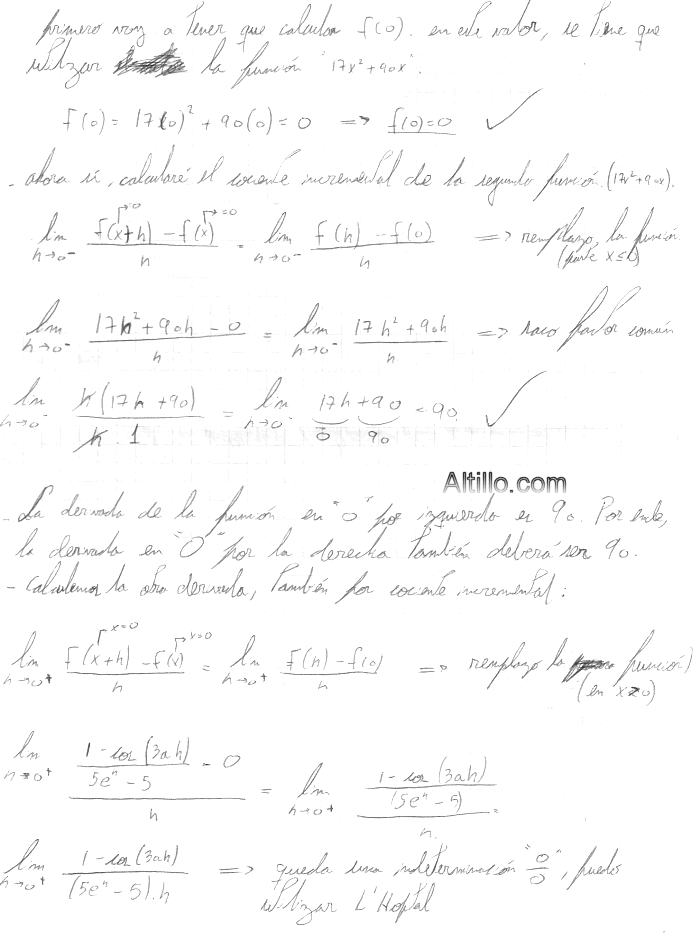 primero voy a tener que calcular f(0). en este valor, se tiene que
utilizar la función "17x²+90x".
f(0) = 17(0)² + 90(0) = 0 => f(0)=0 ✓
- ahora sí, calcularé el cociente incremental de la segunda función. (17x²+90x).
lim h→0⁻ (f(x+h) - f(x))/h = lim h→0⁻ (f(h) - f(0))/h => remplazo, la función
x=0 x=0 (parte x≤0)
lim h→0⁻ (17h²+90h - 0)/h = lim h→0⁻ (17h²+90h)/h => saco factor común
lim h→0⁻ h(17h+90)/(h.1) = lim h→0⁻ 17h+90 = 90 ✓
0 90
Altillo.com
- La derivada de la función en "0" por izquierda es 90. Por ende,
la derivada en "0" por la derecha también deberá ser 90.
- calculemos la otra derivada, también por cociente incremental:
x=0 x=0
lim h→0⁺ (f(x+h) - f(x))/h = lim h→0⁺ (f(h) - f(0))/h => remplazo la función)
(en x>0)
lim h→0⁺ ((1-cos(3ah))/(5eʰ-5) - 0)/h = lim h→0⁺ ((1-cos(3ah))/(5eʰ-5))/h =
lim h→0⁺ (1-cos(3ah))/((5eʰ-5).h) => queda una indeterminación "0/0", puedo
utilizar L'Hoptal